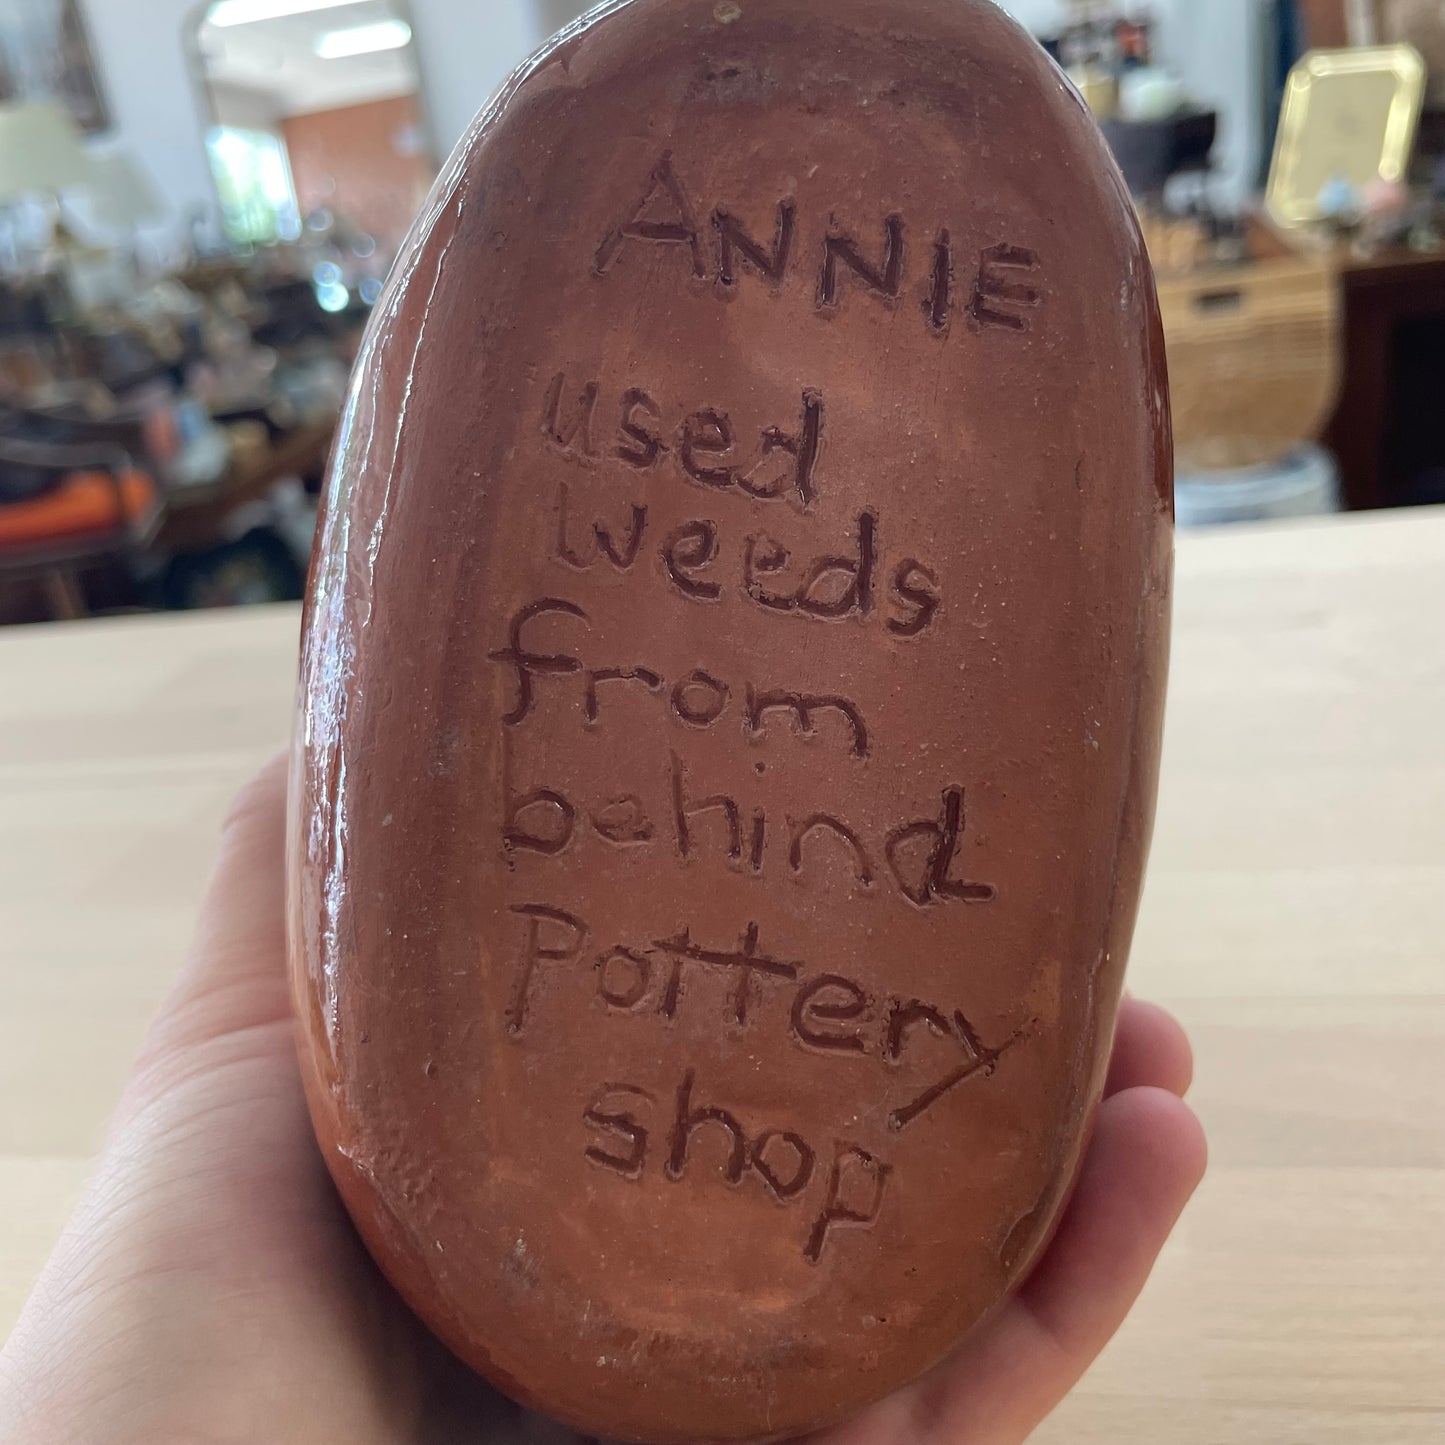 ANNIE
used
weeds
from
behind
Pottery
shop